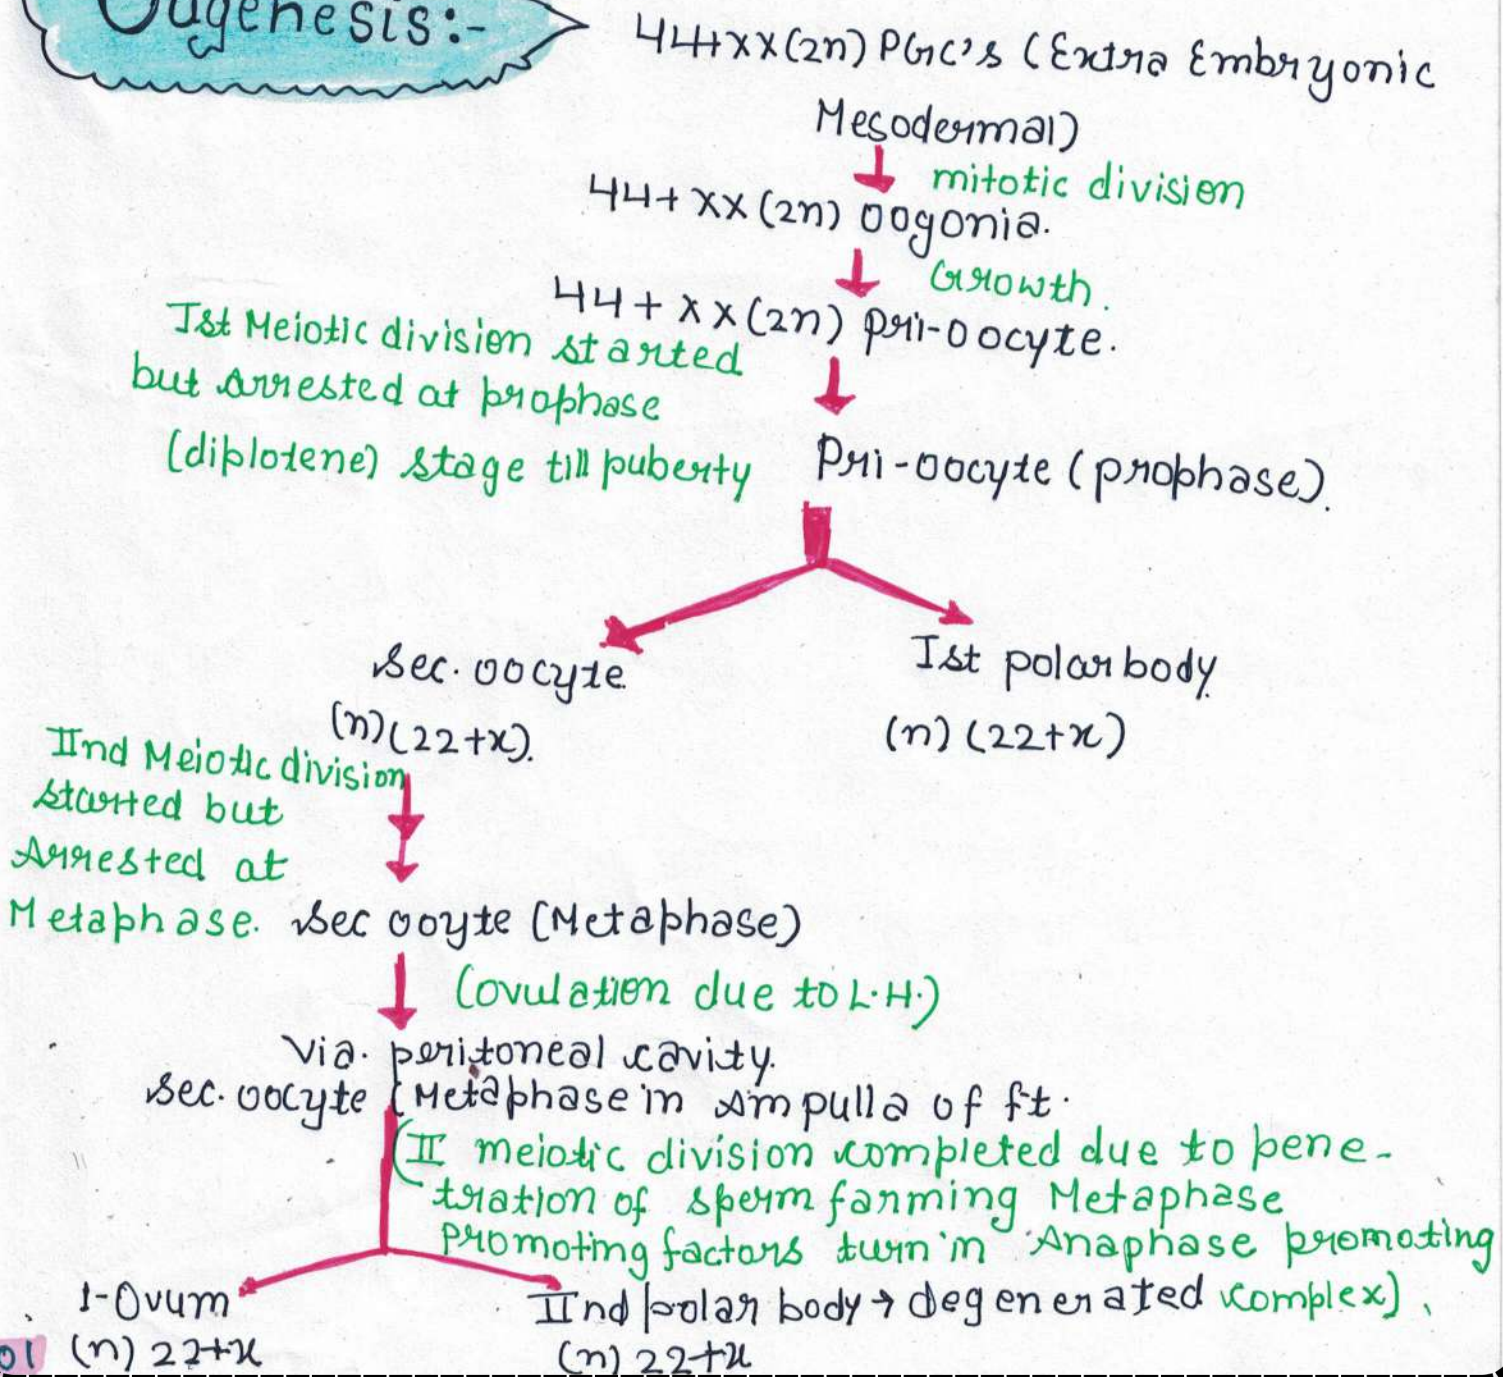 Oogenesis:-
44+xx(2n) PGC's (Extra Embryonic
Mesodermal)
mitotic division
44+xx(2n) oogonia.
Growth.
44+xx(2n) pri-oocyte.
Ist Meiotic division started
but arrested at prophase
(diplotene) stage till puberty
Pri-oocyte (prophase).
sec. oocyte
Ist polar body
(n)(22+x).
(n) (22+x)
IInd Meiotic division
started but
Arrested at
Metaphase.
sec ooyte (Metaphase)
(ovulation due to L.H.)
Via. peritoneal cavity.
sec. oocyte (Metaphase in Ampulla of ft.
(II meiotic division completed due to pene-
tration of sperm farming Metaphase
promoting factors turn in Anaphase promoting
complex).
1-Ovum
IInd polar body → degenerated
(n) 22+x
(n) 22+x
01